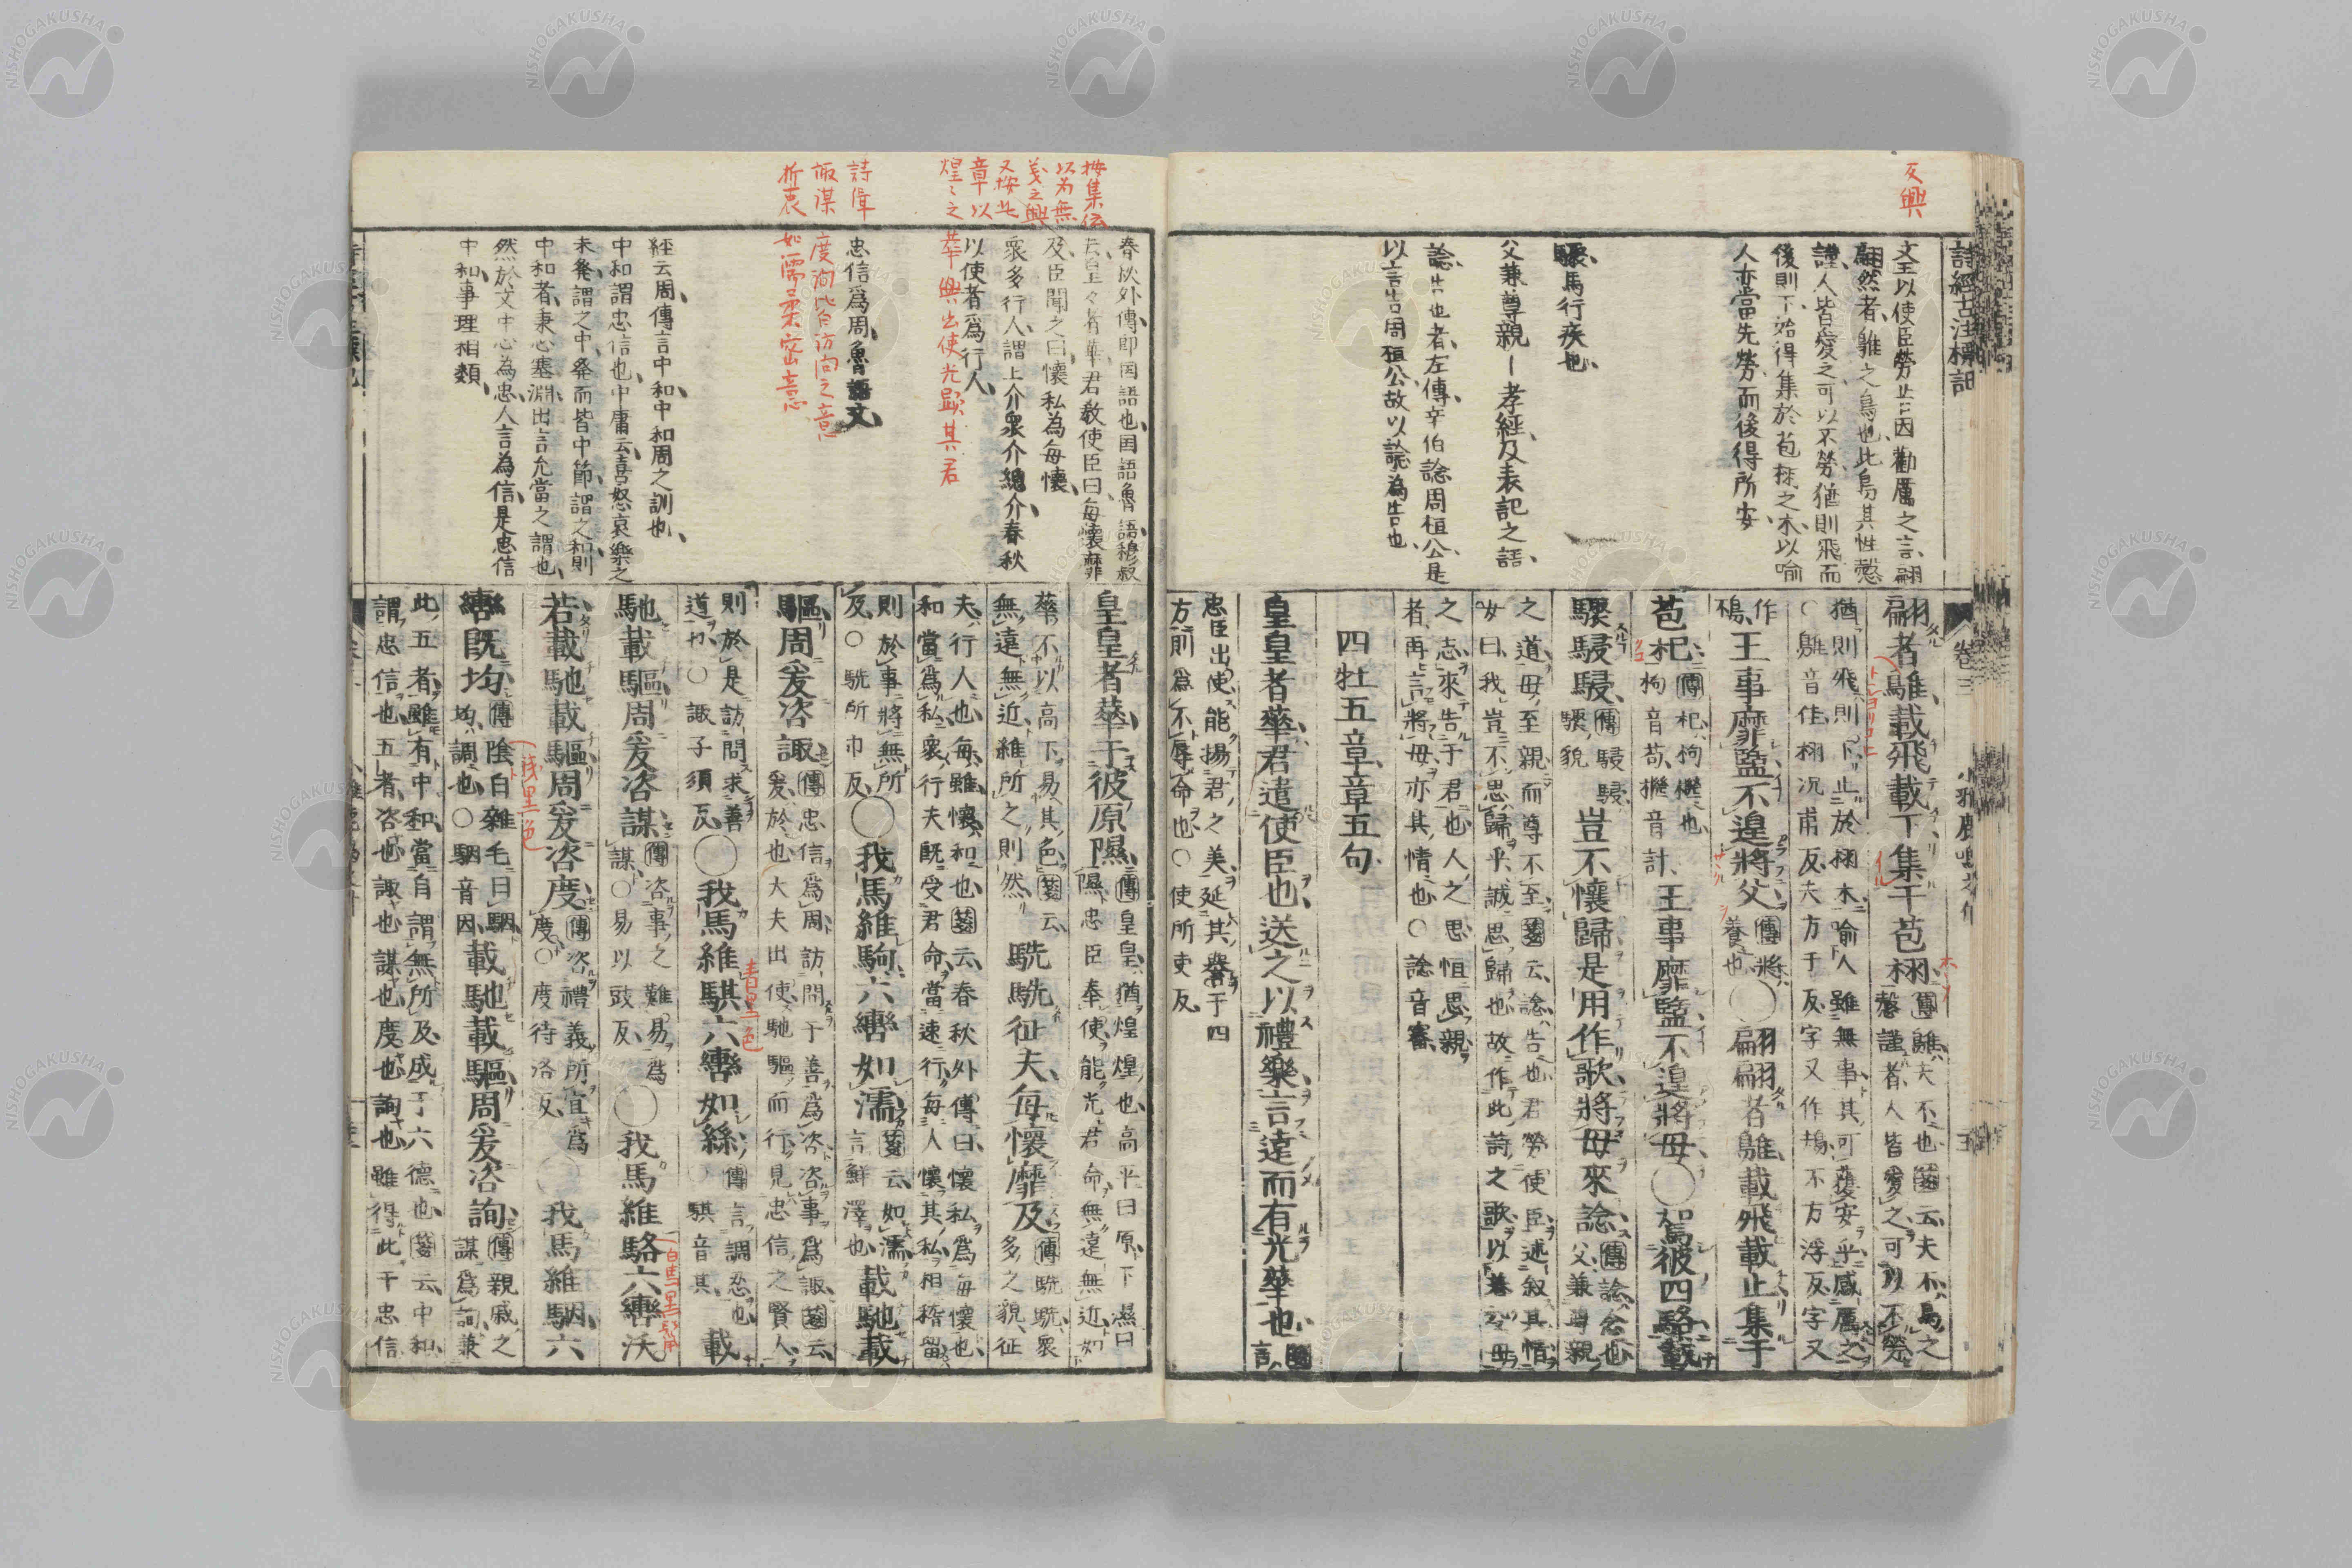 反興
詩經古注標記
文王以使臣勞苦因勸厲之言翩
翩然者鵻之鳥也此鳥其性愨
謹人皆愛之可以不勞猶則飛而
後則下始得集於苞栩之木以喻
人亦當先勞而後得所安
駸馬行疾也
父兼尊親一孝經及表記之語
諗告也者左傳辛伯諗周桓公是
以言告周桓公故以諗為告也
卷三
翩者鵻載飛載下集于苞栩
傳鵻夫不也箋云夫不鳥之
愨謹者人皆愛之可以不勞
猶則飛則下止於栩木喻人雖無事其可獲安乎感厲之
○鵻音隹栩況甫反夫方于反字又作鳺不方浮反字又
作鴀
王事靡盬不遑將父
傳將養也
○翩翩者鵻載飛載止集于
苞杞
傳杞枸檵也
枸音苟檵音計
王事靡盬不遑將母○駕彼四駱載
驟駸駸
傳駸駸驟貌
豈不懷歸是用作歌將母來諗
傳諗念也
父兼尊親
之道母至親而尊不至箋云諗告也君勞使臣述叙其情
女曰我豈不思歸乎誠思歸也故作此詩之歌以養父母
之志來告于君也人之思恒思親
者再言將母亦其情也○諗音審
四牡五章章五句
皇皇者華君遣使臣也送之以禮樂言遠而有光華也
箋言
忠臣出使能揚君之美延其譽于四
方則為不辱命也○使所吏反
按集傳
以為無
義之興
又按此
章以
煌々之
華興出使光顯其君
詩傳
諏謀度詢皆訪問之意
折衷
如濡柔密意
春秋外傳即国語也国語魯語穆叔
夫皇々者華君教使臣曰每懷靡
及臣聞之曰懷私為每懷
衆多行人謂上介衆介總介春秋
以使者為行人
忠信爲周魯語文
經云周傳言中和中和周之訓也
中和謂忠信也中庸云喜怒哀樂之
未發謂之中發而皆中節謂之和則
中和者秉心塞淵出言允當之謂也
然於文中心為忠人言為信是忠信
中和事理相類
皇皇者華于彼原隰
傳皇皇猶煌煌也高平曰原下濕曰
隰忠臣奉使能光君命無遠無近如
華不以高下易其色箋云
無遠無近維所之則然
駪駪征夫每懷靡及
傳駪駪衆
多之貌征
夫行人也每雖懷和也箋云春秋外傳曰懷私為每懷也
和當為私衆行夫旣受君命當速行每人懷其私相稽留
則於事將無所
及○駪所巾反
○我馬維駒六轡如濡
箋云如濡
言鮮澤也
載馳載
驅周爰咨諏
傳忠信爲周訪問于善爲咨咨事爲諏箋云
爰於也大夫出使馳驅而行見忠信之賢人
則於是訪問求善
道也○諏子須反
○我馬維騏六轡如絲
傳言調忍也
騏音其
青黒色
載
馳載驅周爰咨謀
傳咨事之難易爲
謀○易以豉反
○我馬維駱六轡沃
白馬黒鬣
若載馳載驅周爰咨度
傳咨禮義所宜爲
度○度待洛反
○我馬維駰六
轡旣均
傳陰白雜毛曰駰
均調也○駰音因
浅黒色
載馳載驅周爰咨詢
傳親戚之
謀爲詢兼
此五者雖有中和當自謂無所及成于六德也箋云中和
謂忠信也五者咨也諏也謀也度也詢也雖得此于忠信
NISHOGAKUSHA